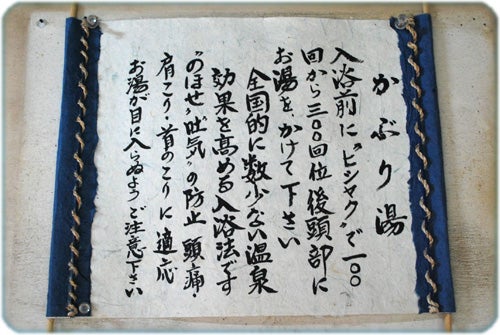 かぶり湯
入浴前に〝ヒシャク〟で一〇〇
回から三〇〇回位後頭部に
お湯を、かけて下さい
全国的に数少ない温泉
効果を高める入浴法です
〝のぼせ〟吐気〟の防止 頭痛・
肩こり・首のこりに適応
お湯が目に入らぬようご注意下さい